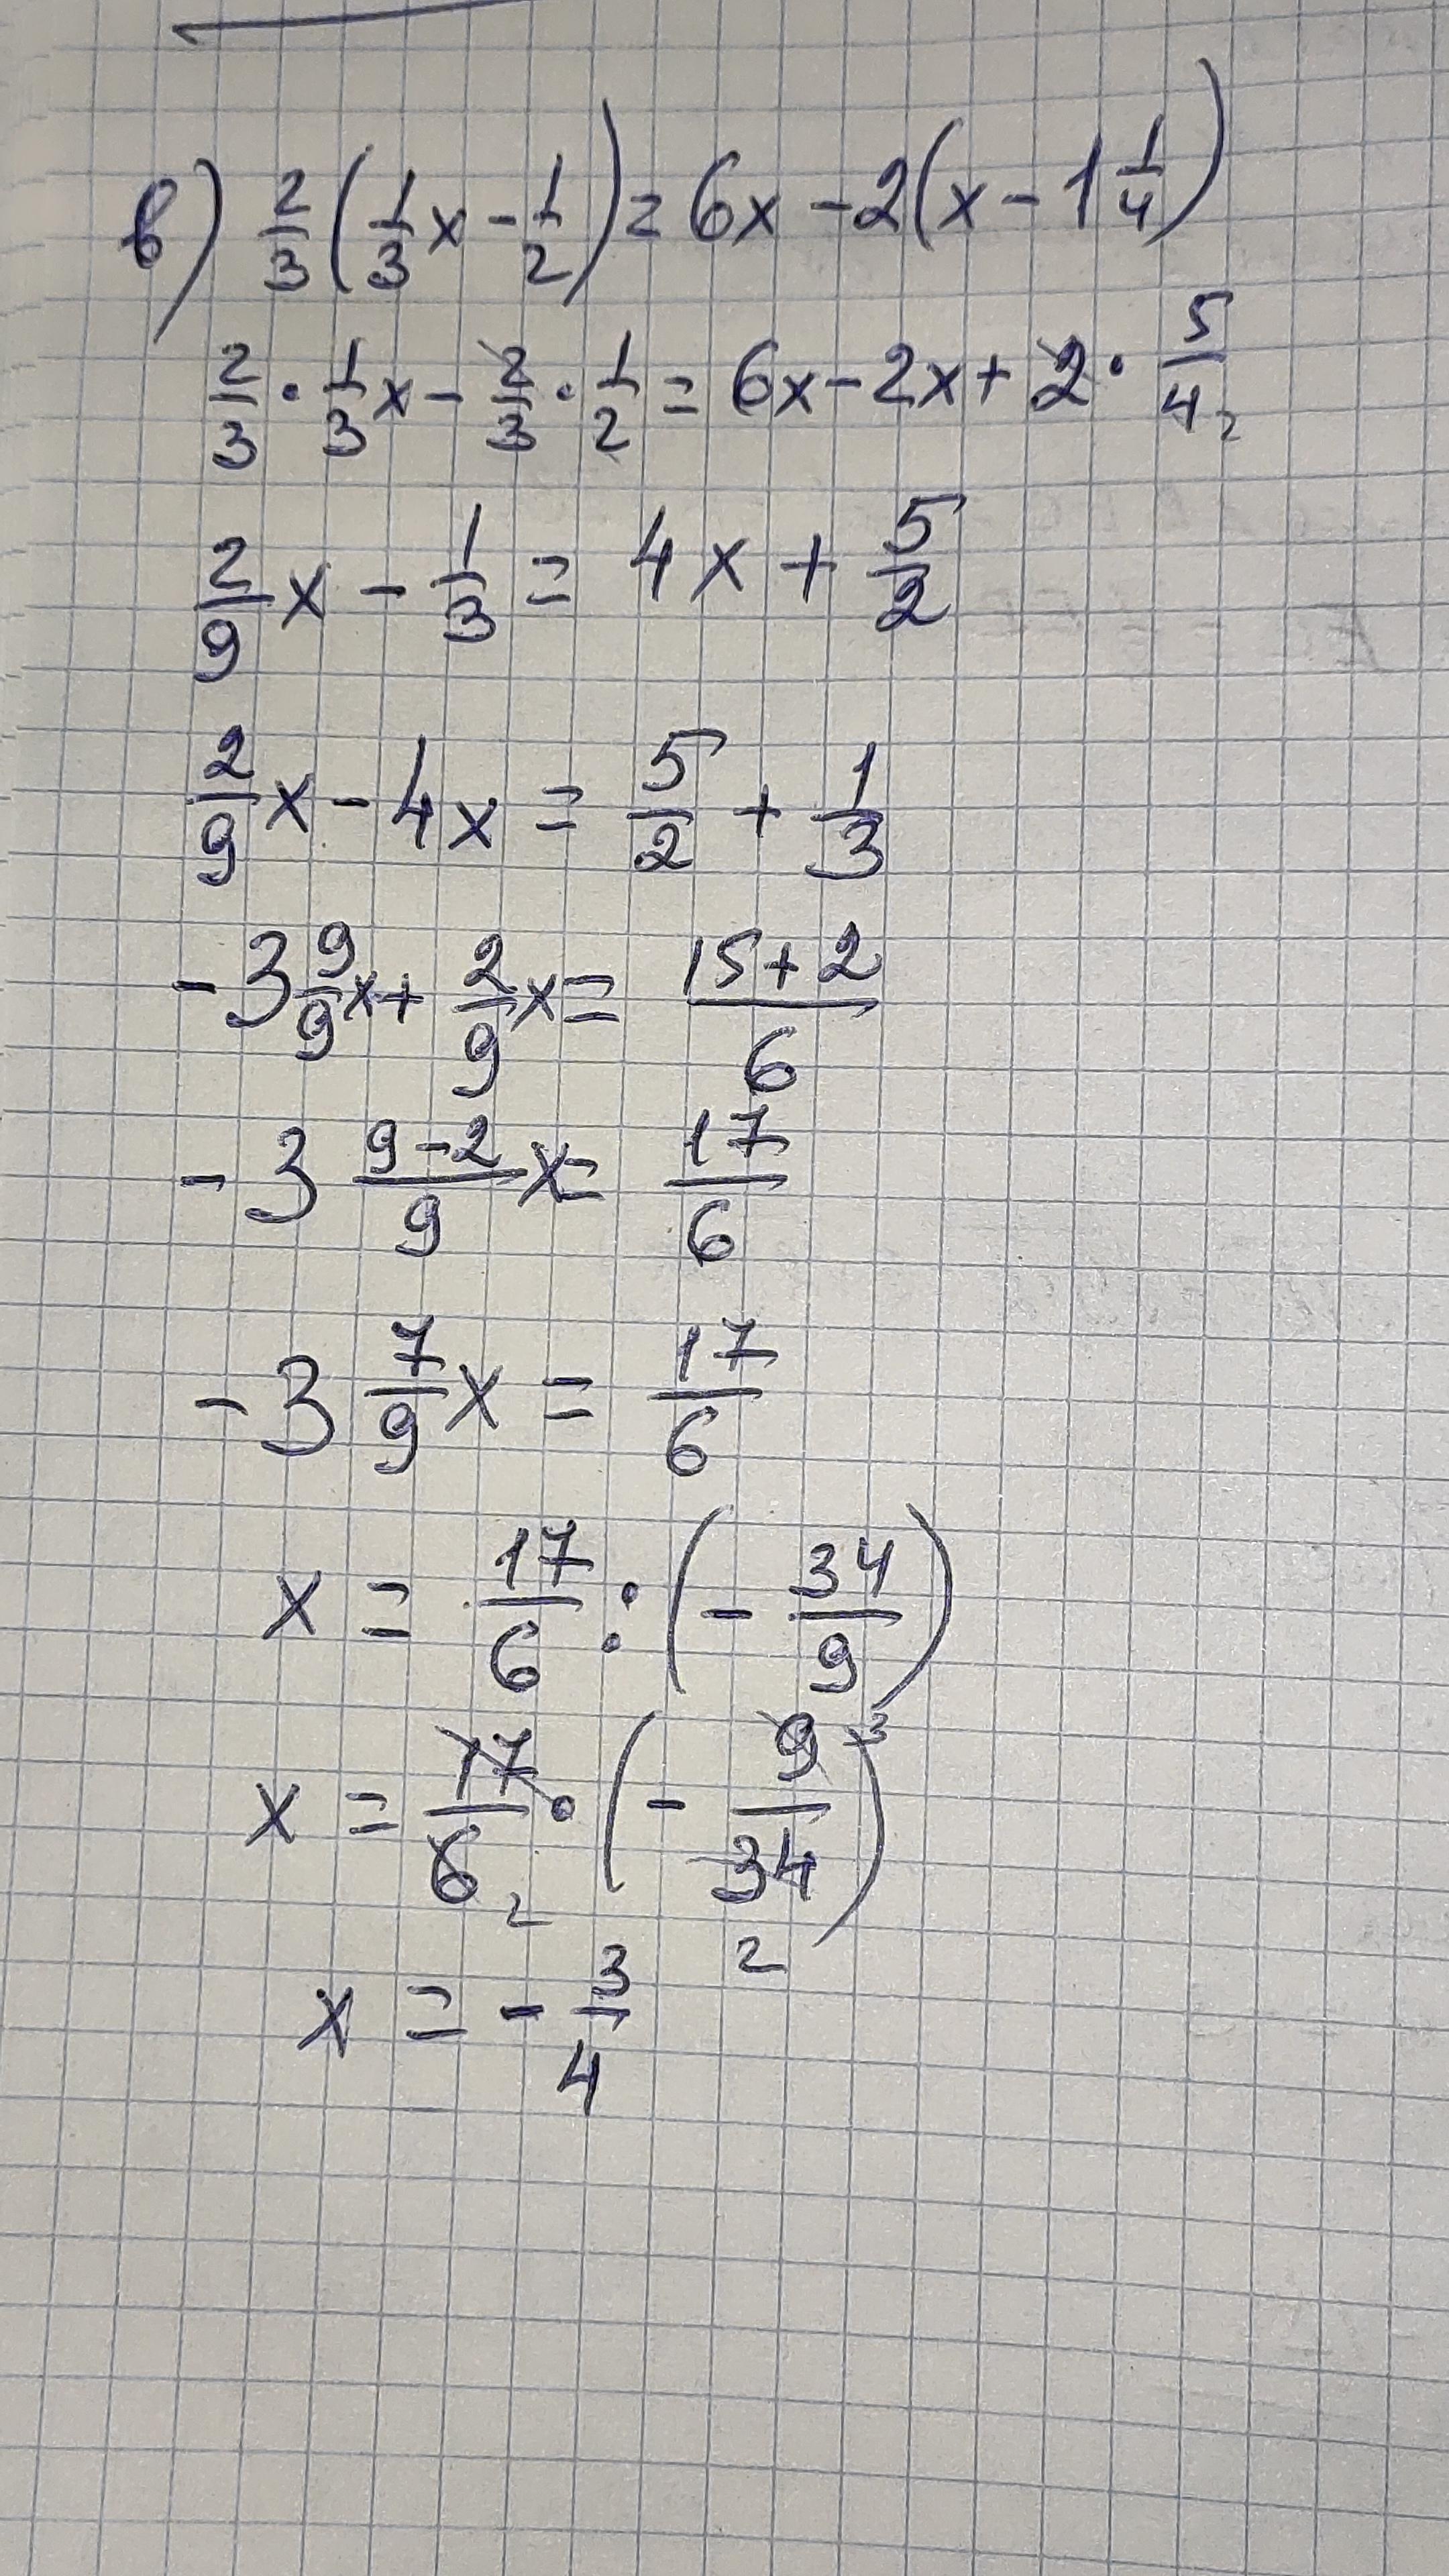 в) 2/3 (1/3 x - 1/2) = 6x - 2(x - 1 1/4)
2/3 · 1/3 x - 2/3 · 1/2 = 6x - 2x + 2 · 5/4 2
2/9 x - 1/3 = 4x + 5/2
2/9 x - 4x = 5/2 + 1/3
- 3 9/9 x + 2/9 x = (15+2)/6
- 3 (9-2)/9 x = 17/6
- 3 7/9 x = 17/6
x = 17/6 : (- 34/9)
x = 17/6 2 · (- 9 3/34 2)
x = - 3/4